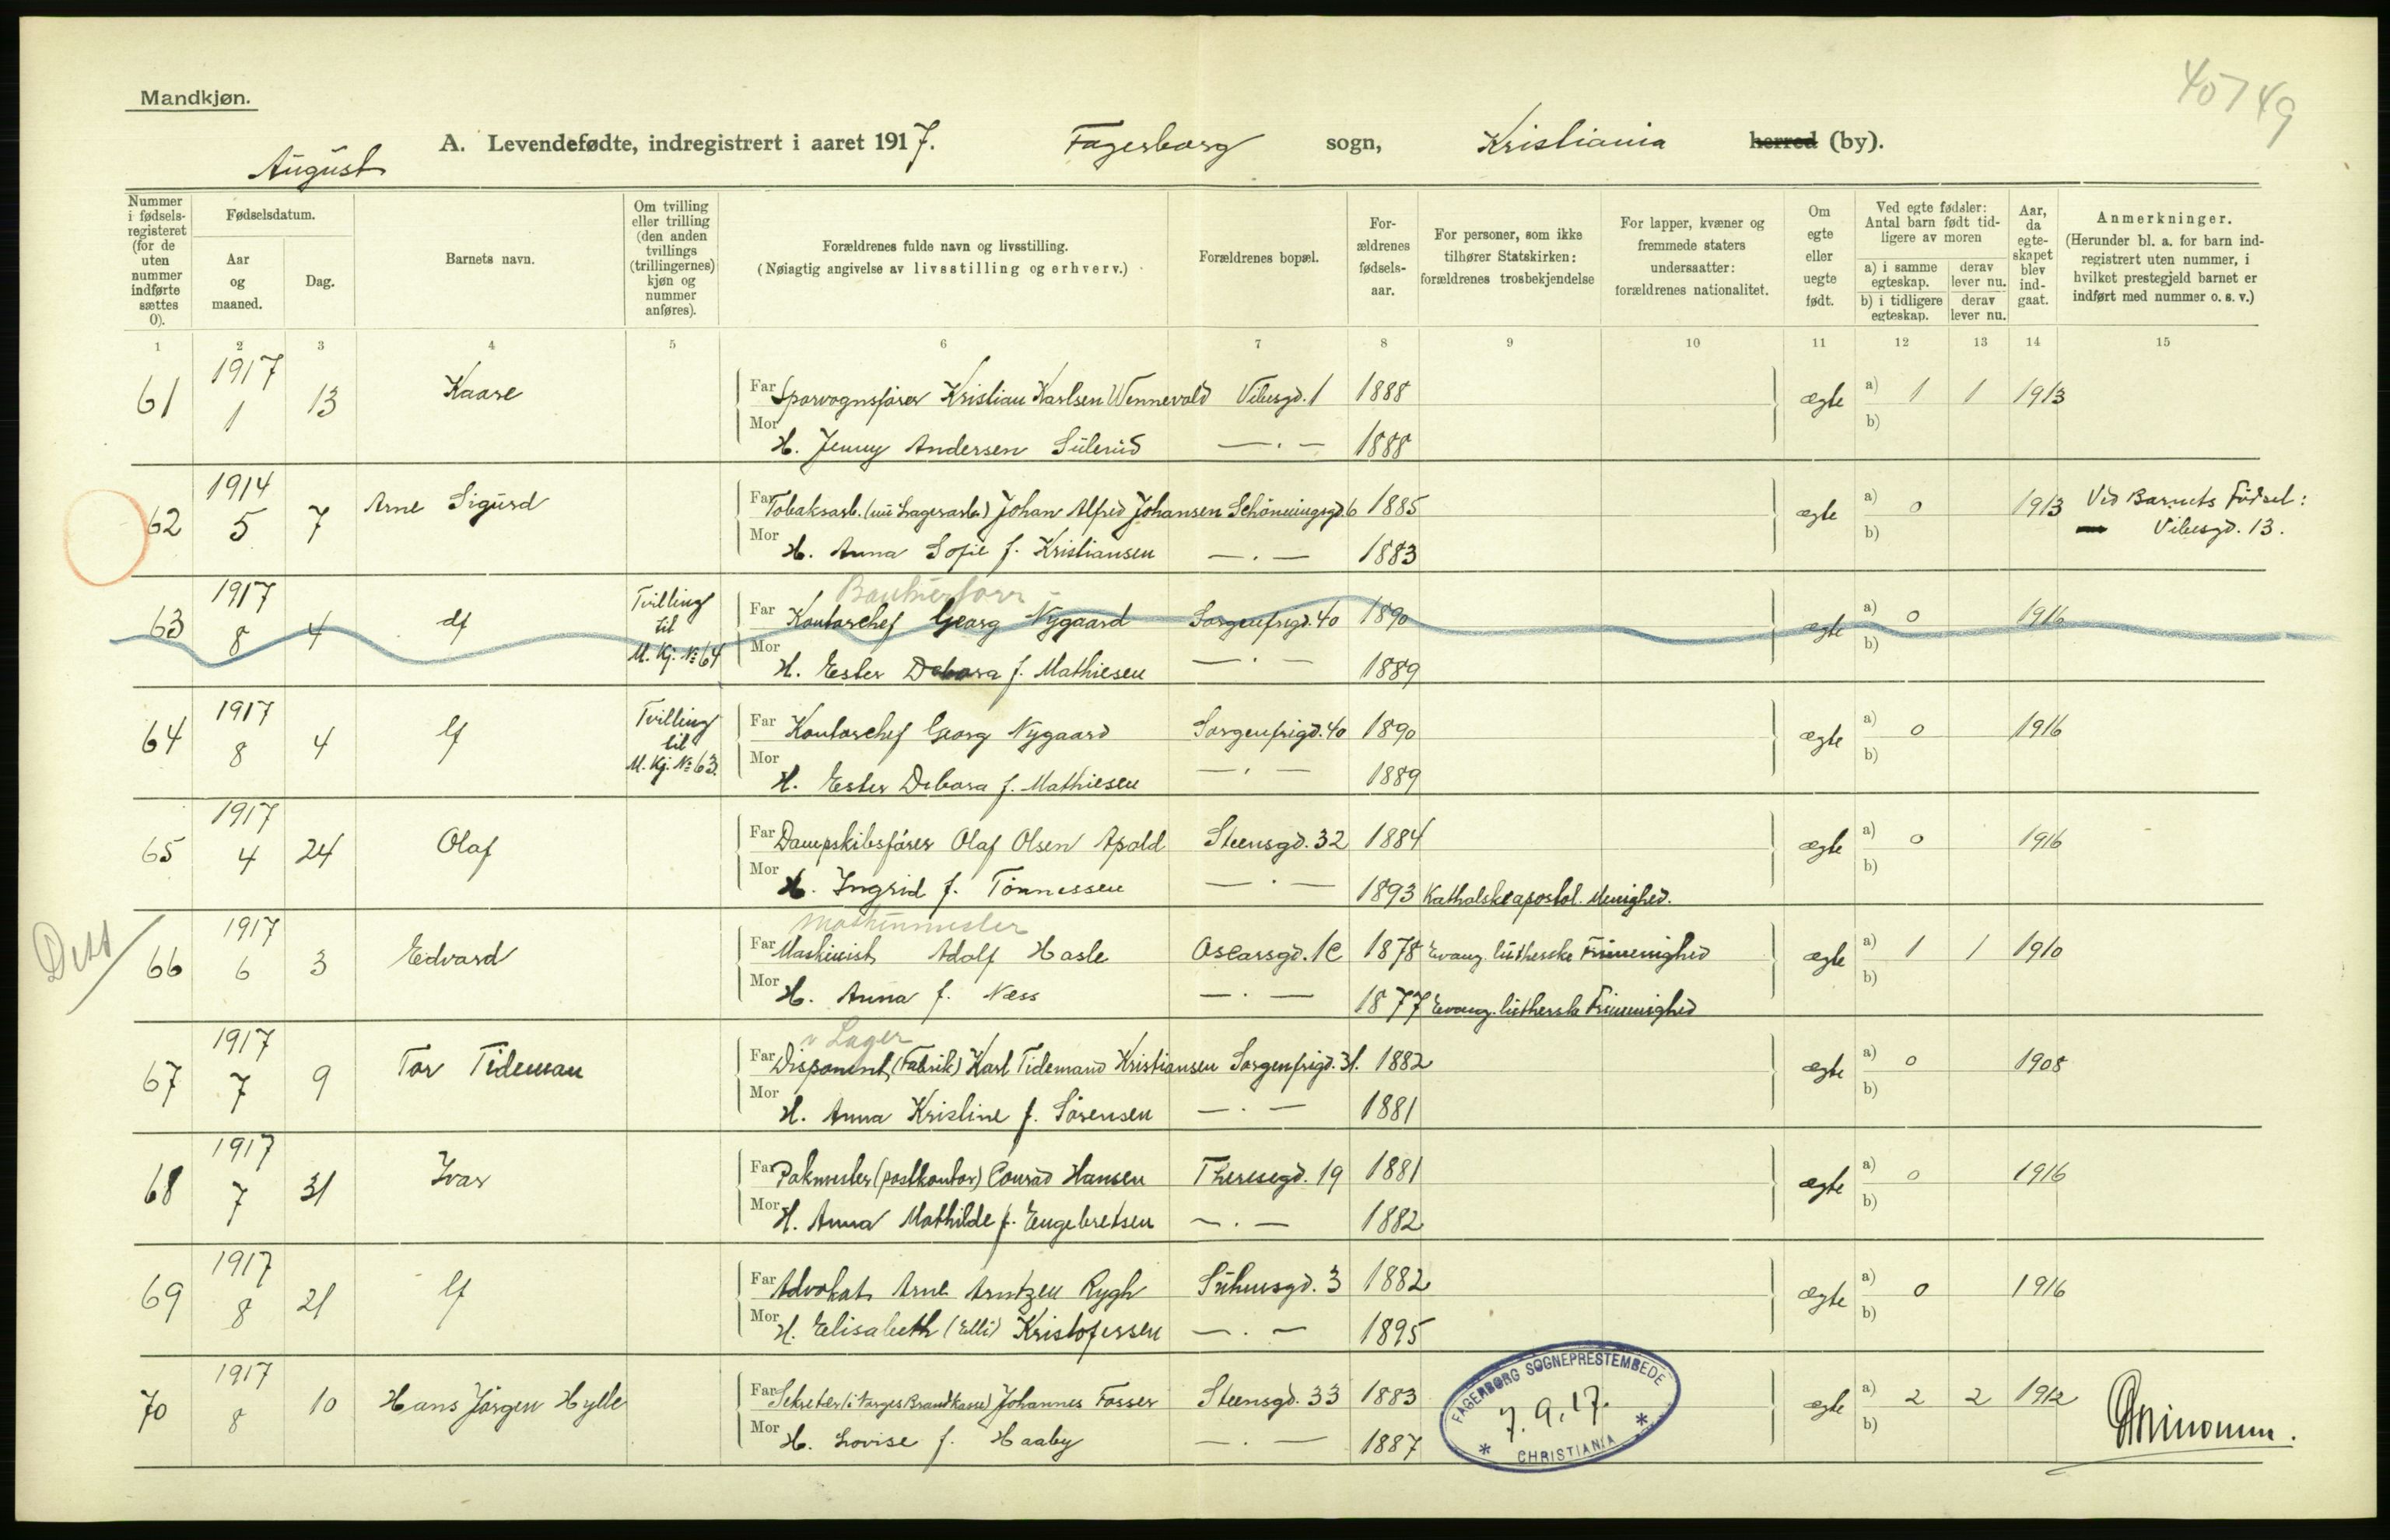 40749
Mandkjøn.
A. Levendefødte, indregistrert i aaret 1917. Fagerborg sogn, Kristiania herred (by).
August
Nummer i fødselsregisteret (for de uten nummer indførte sættes 0).
Fødselsdatum.
Aar og maaned.
Dag.
Barnets navn.
Om tvilling eller trilling (den anden tvillings (trillingernes) kjøn og nummer anføres).
Forældrenes fulde navn og livsstilling.
(Nøiagtig angivelse av livsstilling og erhverv.)
Forældrenes bopæl.
Forældrenes fødselsaar.
For personer, som ikke tilhører Statskirken: forældrenes trosbekjendelse
For lapper, kvæner og fremmede staters undersaatter: forældrenes nationalitet.
Om egte eller uegte født.
Ved egte fødsler: Antal barn født tidligere av moren
a) i samme egteskap. derav lever nu.
b) i tidligere egteskap. derav lever nu.
Aar, da egteskapet blev indgaat.
Anmerkninger.
(Herunder bl. a. for barn indregistrert uten nummer, i hvilket prestegjeld barnet er indført med nummer o. s. v.)
1 2 3 4 5 6 7 8 9 10 11 12 13 14 15
61 1917 1 13 Kaare Far Sporvognsfører Kristian Karlsen Wennevold Vibesgd. 1 1888 ægte a) 1 1 1913
Mor H. Jenny Andersen Sülerud — . — 1888 b)
62 1914 5 7 Arne Sigurd Far Tobaksarb. (nu Lagerarb.) Johan Alfred Johansen Schöningsgd. 6 1885 ægte a) 0 1913 Ved Barnets Födsel:
Mor H. Anna Sofie f. Kristiansen — . — 1883 b) Vibesgd. 13.
Bankierforr
63 1917 8 4 df Tvilling til M. Kj. № 64 Far Kontorchef Georg Nygaard Sorgenfrigd. 40 1890 ægte a) 0 1916
Mor H. Ester Debora f. Mathiesen — . — 1889 b)
64 1917 8 4 lf Tvilling til M. Kj. № 63. Far Kontorchef Georg Nygaard Sorgenfrigd. 40 1890 ægte a) 0 1916
Mor H. Ester Debora f. Mathiesen — . — 1889 b)
65 1917 4 24 Olaf Far Dampskibsfører Olaf Olsen Apold Steensgd. 32 1884 ægte a) 0 1916
Mor H. Ingrid f. Tönnessen — . — 1893 Katholskeapostol. Menighed. b)
Maskinmester
66 1917 6 3 Edvard Far Maskinist Adolf Hasle Oscarsgd. 1c 1878 Evang. lütherske Frimenighed ægte a) 1 1 1910
Mor H. Anna f. Næss — . — 1877 Evang. lütherske Frimenighed b)
v Lager
67 1917 7 9 Tor Tideman Far Disponent (Fabrik) Karl Tidemand Kristiansen Sorgenfrigd. 31. 1882 ægte a) 0 1908
Mor H. Anna Kristine f. Sörensen — . — 1881 b)
68 1917 7 31 Ivar Far Pakmester (postkontor) Conrad Hansen Theresegd. 19 1881 ægte a) 0 1916
Mor H. Anna Mathilde f. Engebretsen — . — 1882 b)
69 1917 8 21 lf Far Advokat Arne Arntzen Rygh Suhmsgd. 3 1882 ægte a) 0 1916
Mor H. Elisabeth (Elli) Kristofersen — . — 1895 b)
70 1917 8 10 Hans Jörgen Hylle Far Sekretær (i Norges Brandkasse) Johannes Fosser Steensgd. 33 1883 ægte a) 2 2 1912
Mor H. Lovise f. Haaby — . — 1887 b)
FAGERBORG SOGNEPRESTEMBEDE
7. 9. 17.
* CHRISTIANIA *